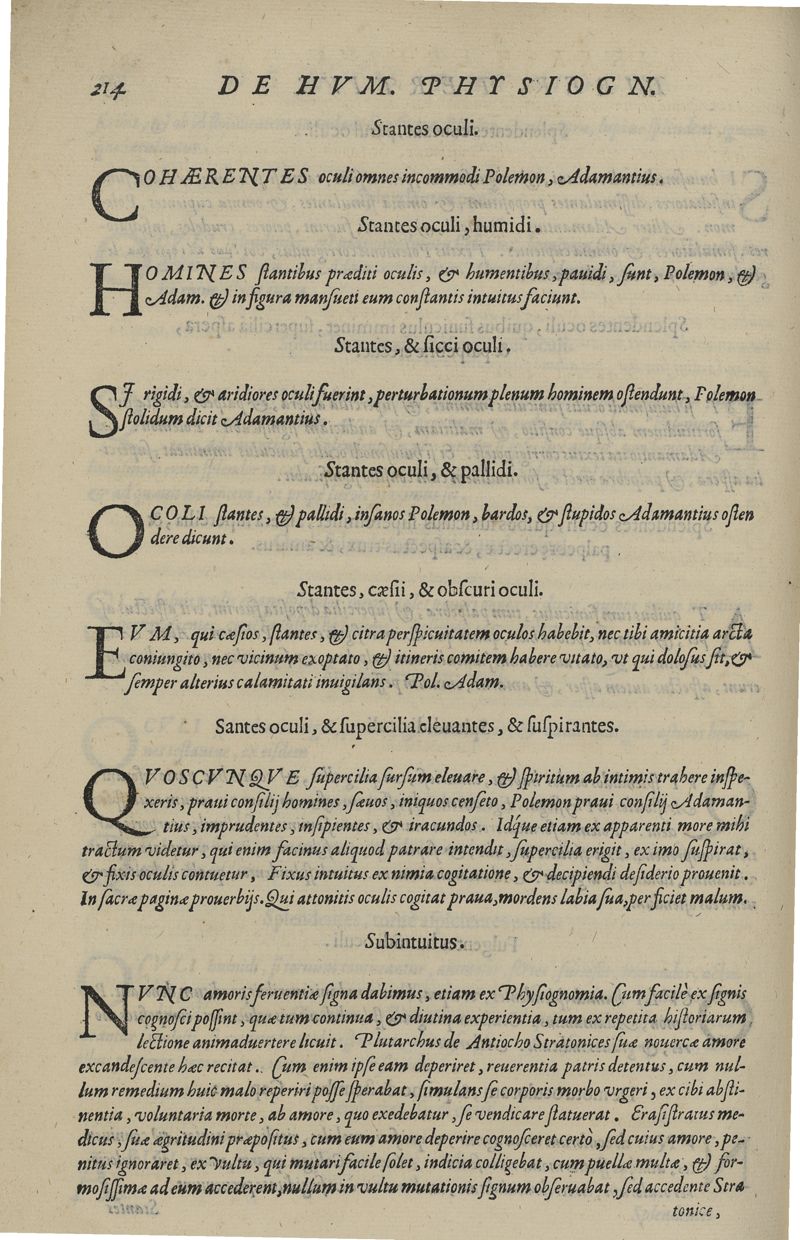 214 DE HVM. PHYSIOGN.
Stantes oculi.
COHÆRENTES oculi omnes incommodi Polemon, Adamantius.
Stantes oculi, humidi.
HOMINES ſtantibus præditi oculis, & humentibus, pauidi, ſunt, Polemon, &
Adam. & in figura manſueti eum conſtantis intuitus faciunt.
Stantes, & ſicci oculi.
SI rigidi, & aridiores oculi fuerint, perturbationum plenum hominem oſtendunt, Polemon
ſtolidum dicit Adamantius.
Stantes oculi, & pallidi.
OCOLI ſtantes, & pallidi, inſanos Polemon, bardos, & ſtupidos Adamantius oſten
dere dicunt.
Stantes, cæſii, & obſcuri oculi.
EVM, qui cæſios, ſtantes, & citra perſpicuitatem oculos habebit, nec tibi amicitia arcta
coniungito, nec vicinum exoptato, & itineris comitem habere vitato, vt qui doloſus ſit, &
ſemper alterius calamitati inuigilans. Pol. Adam.
Santes oculi, & ſupercilia eleuantes, & ſuſpirantes.
QVOSCVNQVE ſupercilia ſurſum eleuare, & ſpiritum ab intimis trahere inſpe-
xeris, praui conſilij homines, ſæuos, iniquos cenſeto, Polemon praui conſilij Adaman-
tius, imprudentes, inſipientes, & iracundos. Idq́ue etiam ex apparenti more mihi
tractum videtur, qui enim facinus aliquod patrare intendit, ſupercilia erigit, ex imo ſuſpirat,
& fixis oculis contuetur, Fixus intuitus ex nimia cogitatione, & decipiendi deſiderio prouenit.
In ſacræ paginæ prouerbijs. Qui attonitis oculis cogitat praua, mordens labia ſua, perficiet malum.
Subintuitus.
NVNC amoris feruentiæ ſigna dabimus, etiam ex Phyſiognomia. Cum facilè ex ſignis
cognoſci poſſint, quæ tum continua, & diutina experientia, tum ex repetita hiſtoriarum
lectione animaduertere licuit. Plutarchus de Antiocho Stratonices ſuæ nouercæ amore
excandeſcente hæc recitat. Cum enim ipſe eam deperiret, reuerentia patris detentus, cum nul-
lum remedium huic malo reperiri poſſe ſperabat, ſimulans ſe corporis morbo vrgeri, ex cibi abſti-
nentia, voluntaria morte, ab amore, quo exedebatur, ſe vendicare ſtatuerat. Eraſiſtratus me-
dicus, ſuæ ægritudini præpoſitus, cum eum amore deperire cognoſceret certò, ſed cuius amore, pe-
nitus ignoraret, ex vultu, qui mutari facile ſolet, indicia colligebat, cum puellæ multæ, & for-
moſiſſimæ ad eum accederent, nullum in vultu mutationis ſignum obſeruabat, ſed accedente Stra
tonice,